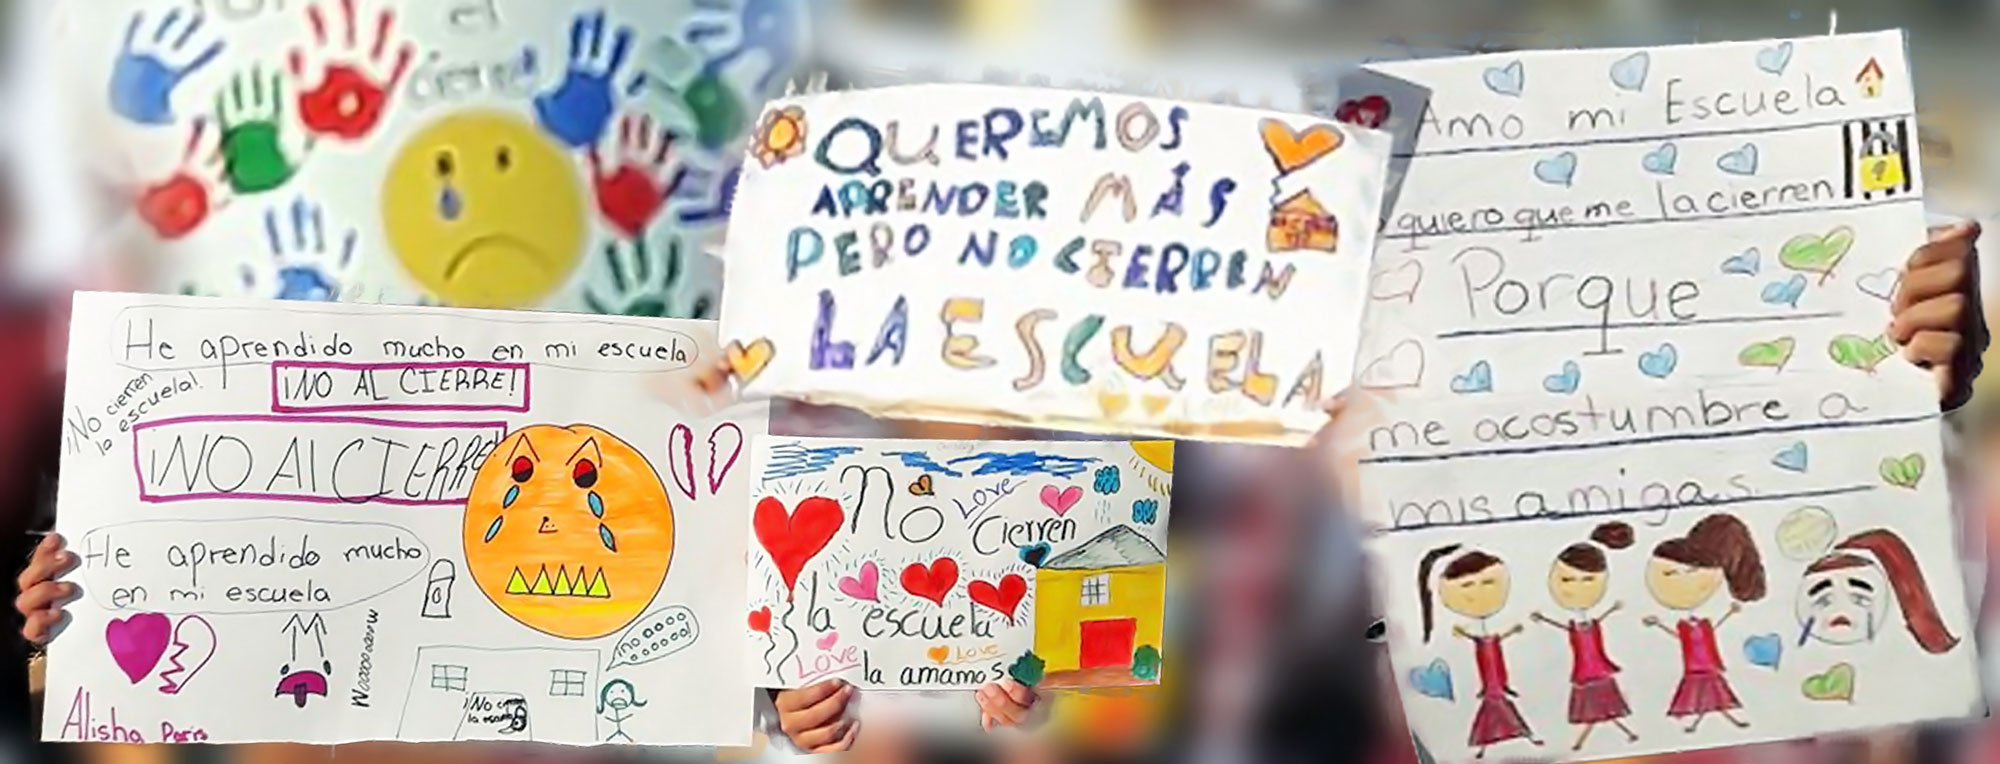 el
cierre
QUEREMOS
APRENDER MÁS
PERO NO CIERREN
LA ESCUELA
Amo mi Escuela
quiero que me la cierren
Porque
me acostumbre a
mis amigas
He aprendido mucho en mi escuela
¡No cierren
la escuela!
¡NO AL CIERRE!
¡NO Al CIERRE
He aprendido mucho
en mi escuela
Alisha
¡No
No
Love
Cierren
la escuela
Love
Love
la amamos